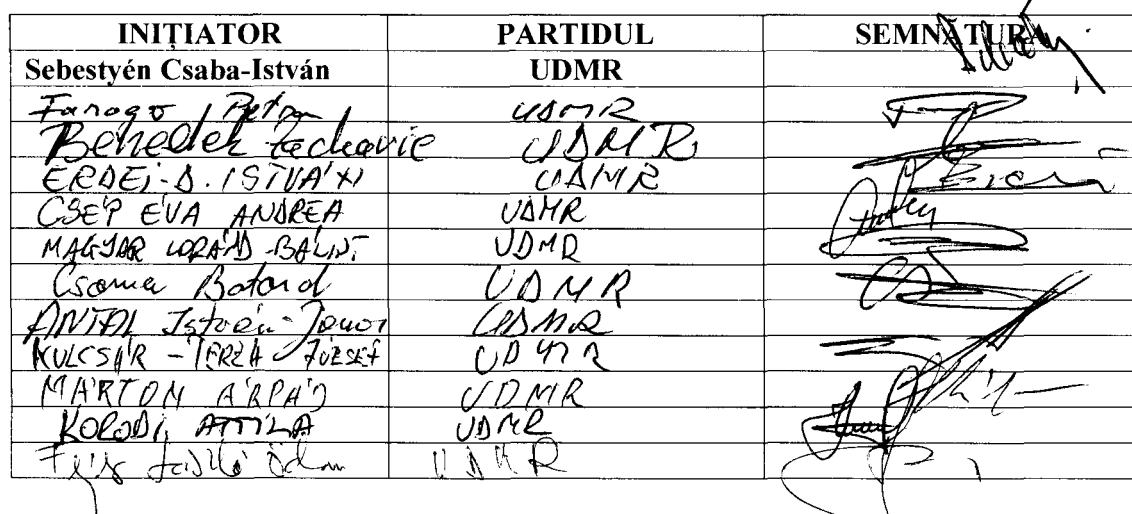 INIȚIATOR PARTIDUL SEMNĂTURA
Sebestyén Csaba-István UDMR
Faragó Petru UDMR
Benedek Zacharie UDMR
ERDEI-D. ISTVÁN UDMR
CSÉP ÉVA ANDREA UDMR
MAGYAR LORÁND-BÁLINT UDMR
Csoma Botond UDMR
ANTAL István-János UDMR
KULCSÁR-TERZA JÓZSEF UDMR
MÁRTON ÁRPÁD UDMR
KORODI ATTILA UDMR
László Ödön UDMR